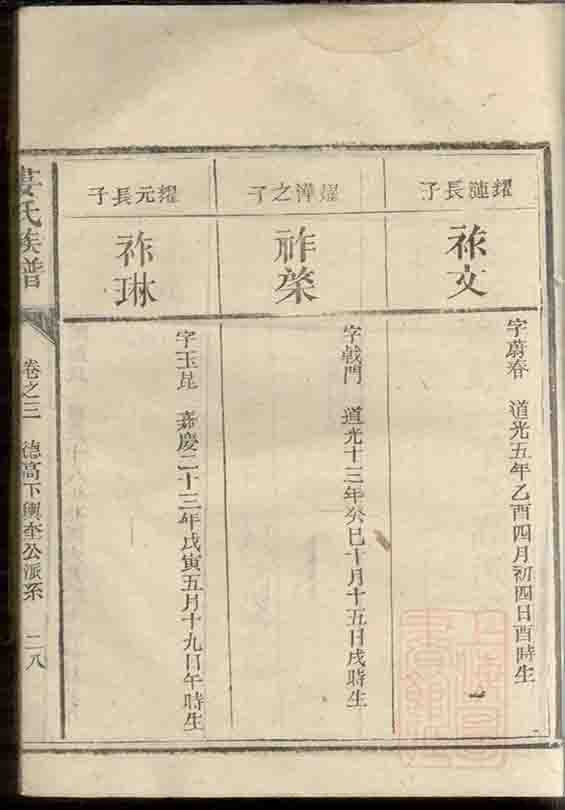 耀漣長子
祚文
字蔚春 道光五年乙酉四月初四日酉時生
耀澕之子
祚榮
字戟門 道光十三年癸巳十月十五日戌時生
耀元長子
祚琳
字玉昆 嘉慶二十三年戊寅五月十九日午時生
婁氏族譜
卷之三 德高下興奎公派系 二八